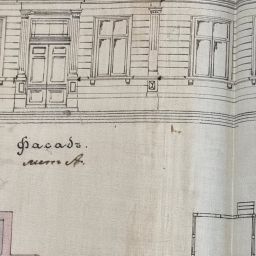 Фасадъ.
литъ А.